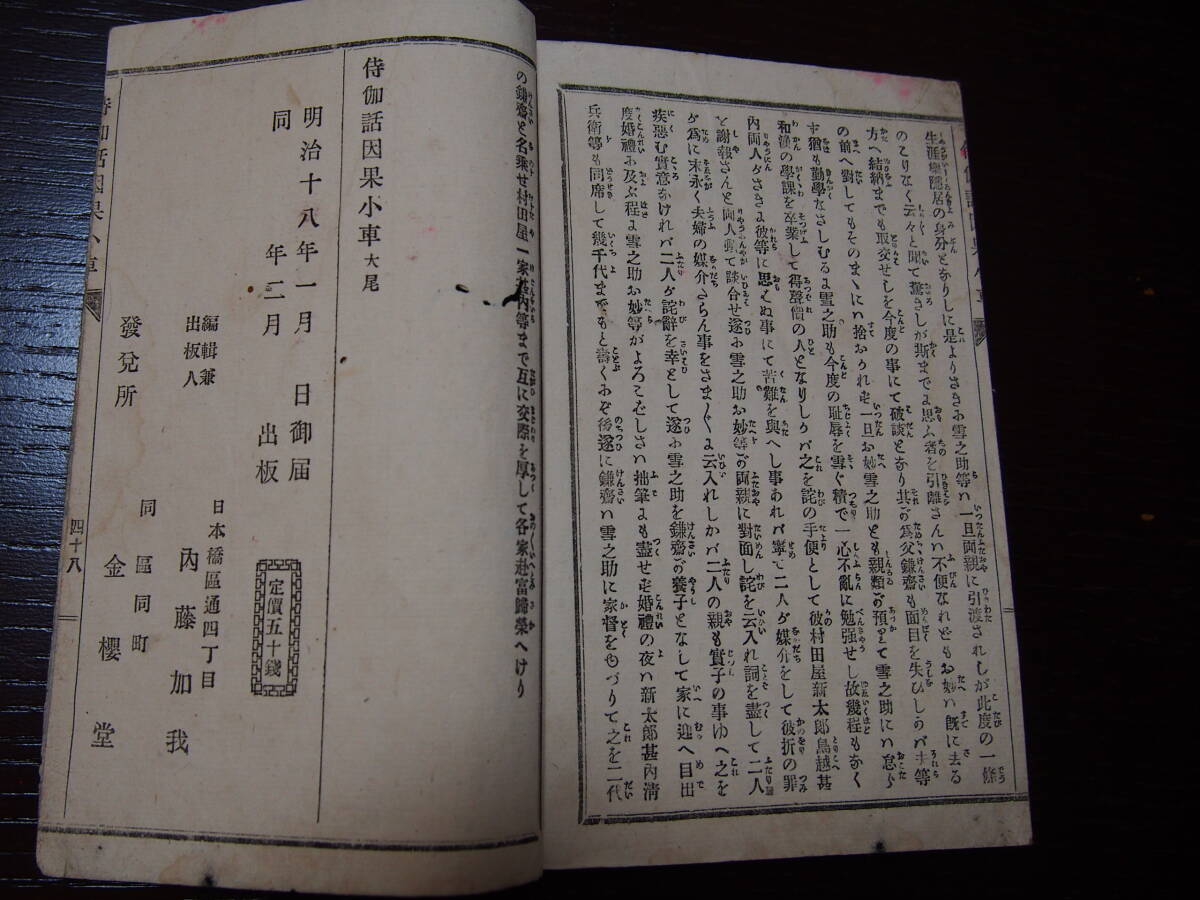 生涯樂隱居の身分となりしに是よりさきお雪之助等ハ一旦両親に引渡されしが此度の一條
のこりなく云々と聞て驚きしが斯までよ思ふ者を引離さんハ不便なれどもお妙ハ既に去る
方へ結納までも取交せしを今度の事にて破談となり其が爲父鎌齋も面目を失ひしかバ夫等
の前へ對してもそのまゝに捨おかれず一旦お妙雪之助とも親類が預りて雪之助にハ怠ら
ず猶も勤學なさしむるよ雪之助も今度の耻辱を雪ぐ積で一心不亂に勉强せし故幾程もなく
和漢の學課を卒業して得聲價の人となりしかバ之を詫の手便として彼村田屋新太郎鳥越甚
内両人がさきよ彼等に思ハぬ事にて苦難を與へし事あれバ寧て二人が媒介をして彼折の罪
を謝報さんと両人動て談合せ遂お雪之助お妙等が両親に對面し詫を云入れ詞を盡して二人
が爲に末永く夫婦の媒介ならん事をさま〲よ云入れしかバ二人の親も實子の事ゆへ之を
疾惡む實意なけれバ二人が詫辭を幸として遂お雪之助を鎌齋の養子となして家に迎へ目出
度婚禮お及ぶ程よ雪之助お妙等がよろこばしさハ拙筆よも盡せず婚禮の夜ハ新太郎甚内淸
兵衛等も同席して幾千代までもと壽くおぞ後遂に鎌齋ハ雪之助に家督をゆづりて之を二代
の鎌齋と名乘せ村田屋一家甚内等まで互に交際を厚して各家赴富歸榮へけり
侍伽話因果小車大尾
明治十八年一月 日御届
同 年二月 出板
定價五十錢
編輯兼
出板人
日本橋區通四丁目
內藤加我
發兌所
同區同町
金櫻堂
四十八